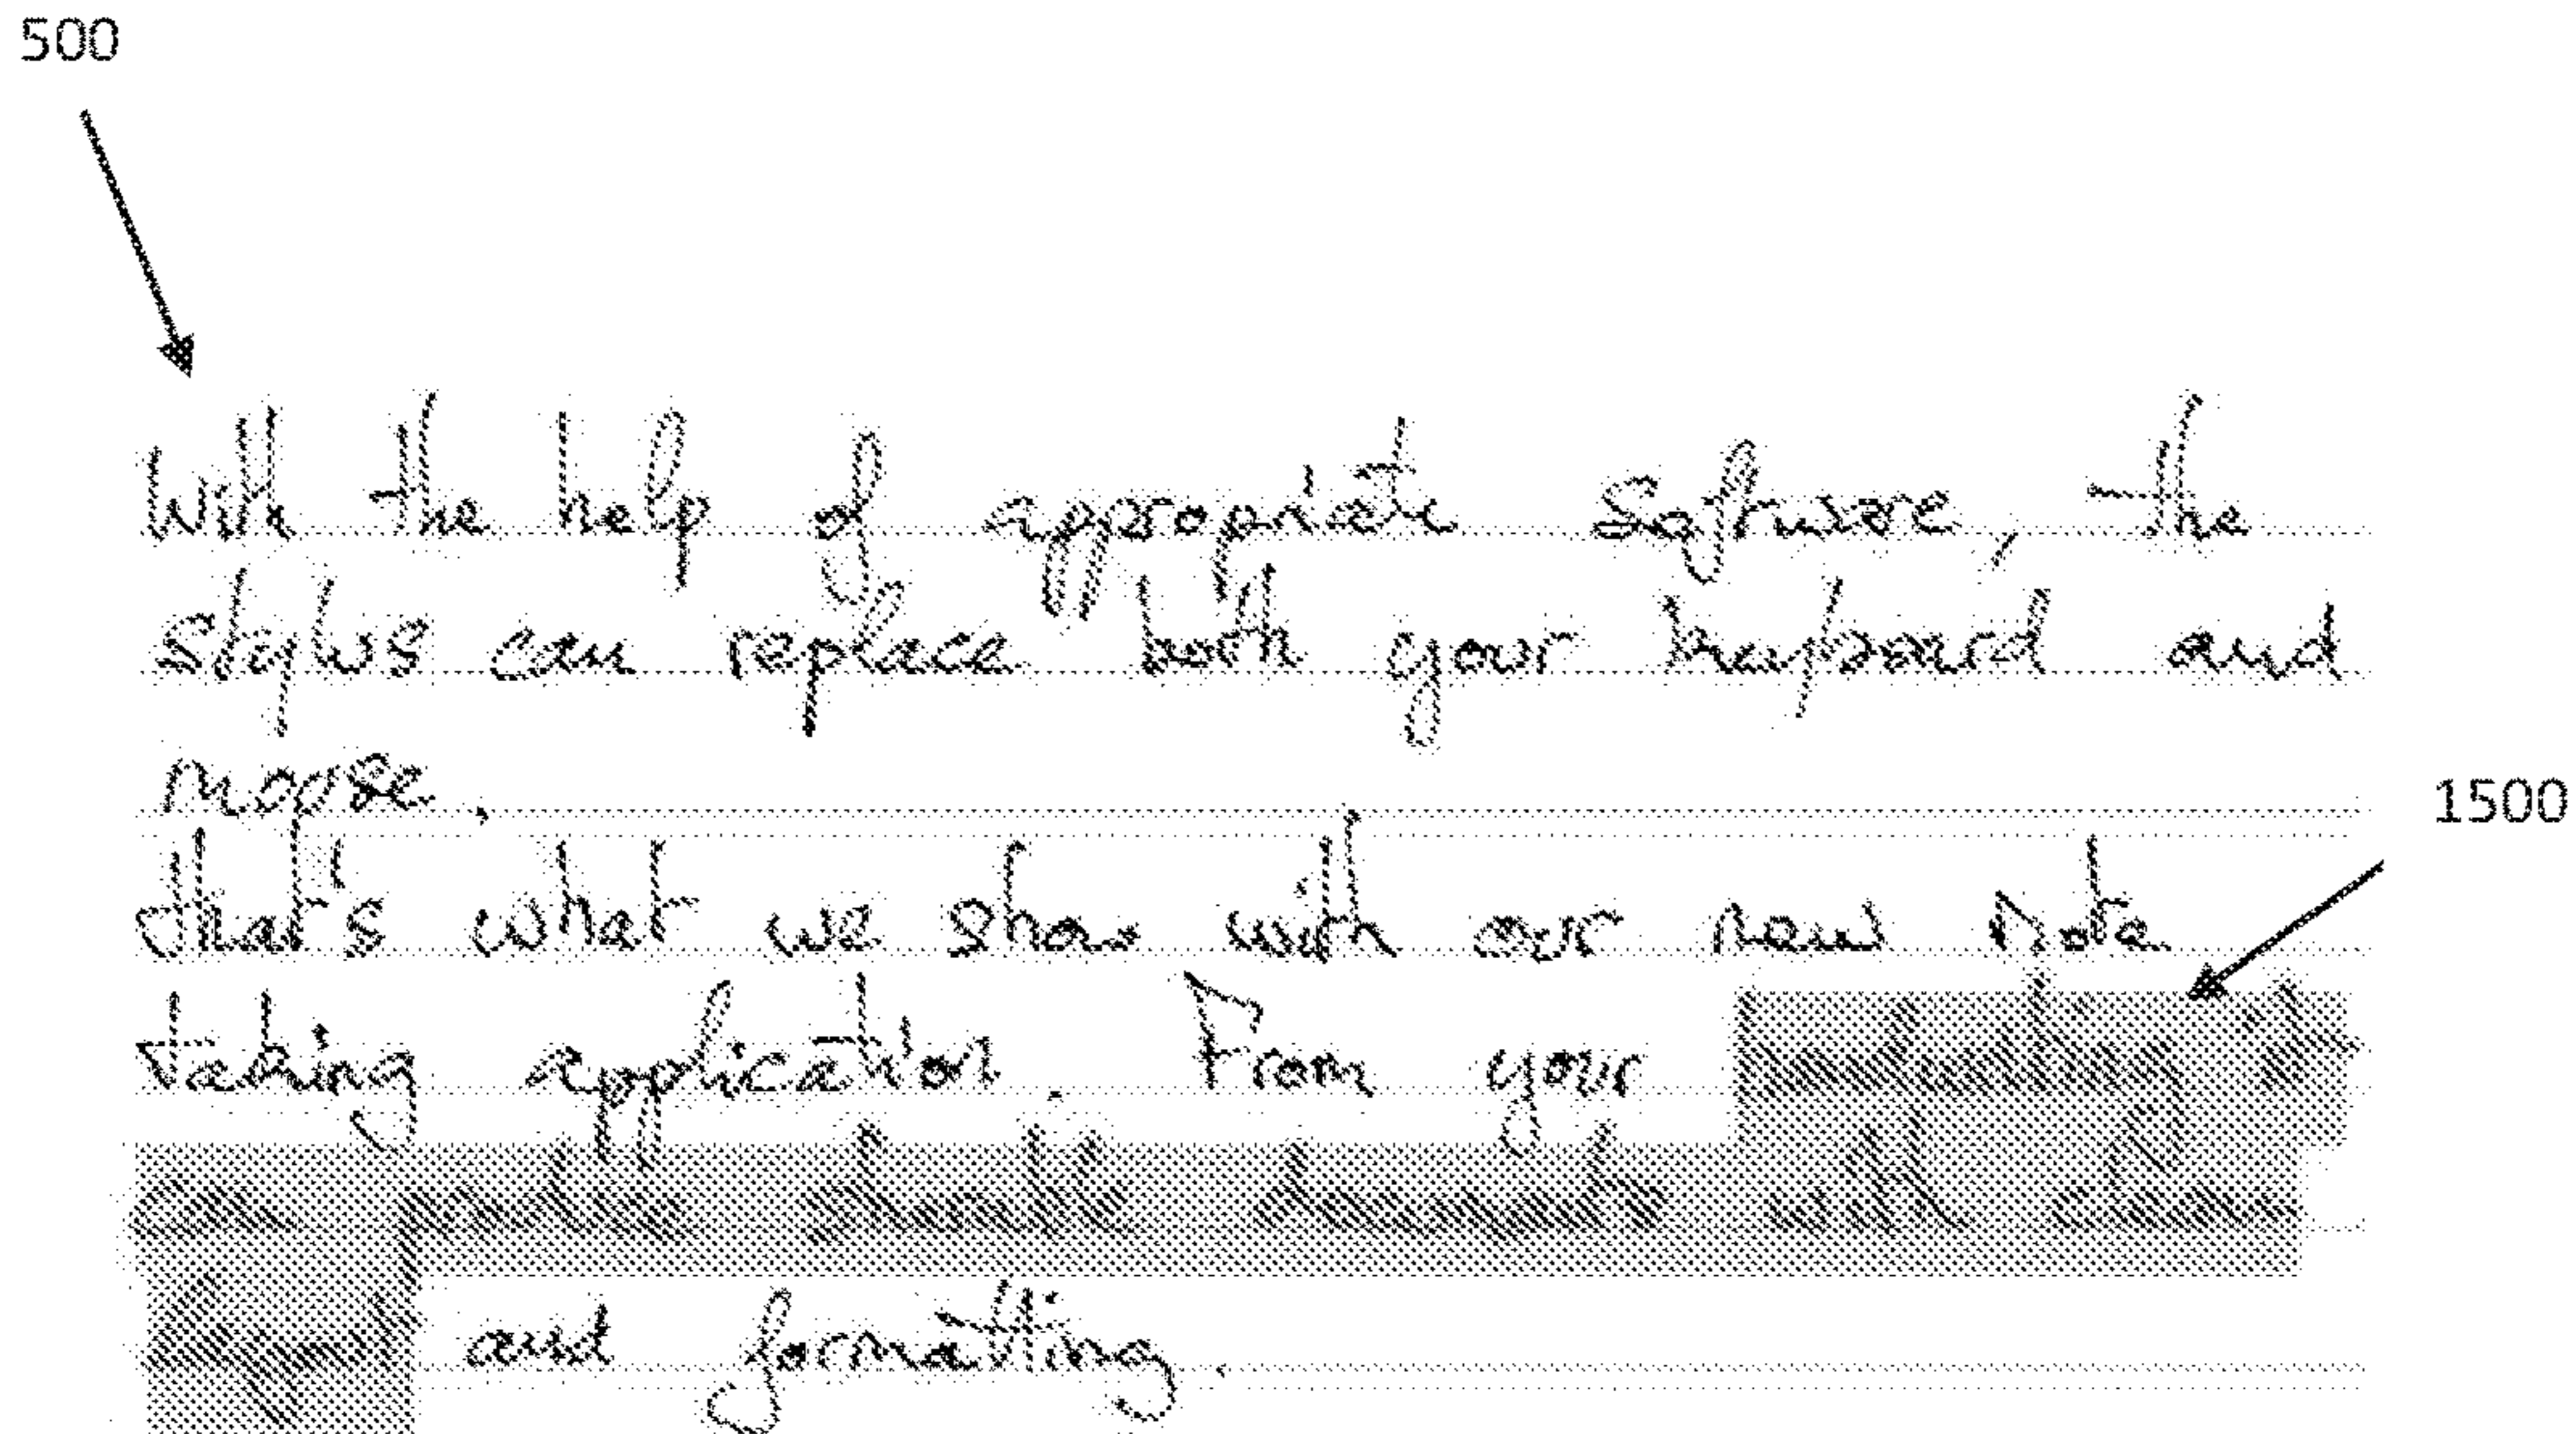 500
With the help of appropriate Software, the
stylus can replace both your keyboard and
moose.
1500
that's what we show with our new Note
taking application. From your handwriting it
can documents with clean
and formatting.